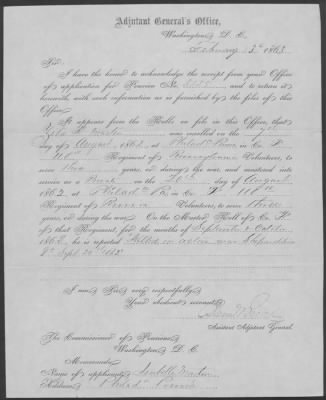 Adjutant General's Office,
Washington, D. C.
February 1863
Sir:
I have the honor to acknowledge the receipt from your Office
of application for Pension No. and to return it
herewith, with such information as is furnished by the files of this
Office.
It appears from the Rolls on file in this Office, that
was enrolled on the
day of August, 1862, at Philada Penn in Co.
Regiment of Pennsylvania Volunteers, to
serve years, or during the war, and mustered into
service as a on the day of August
1862, at Philada Pa, in Co.
Regiment of Penna Volunteers, to serve three
years, or during the war. On the Muster Roll of Co.
of that Regiment, for the months of September & October
1862, he is reported "Killed in action near Shepherdstown
Va Sept 20th 1862"
I am, Sir, very respectfully,
Your obedient servant,
Assistant Adjutant General.
The Commissioner of Pensions,
Washington, D. C.
Memoranda:
Name of applicant,
Address, Philada Penna